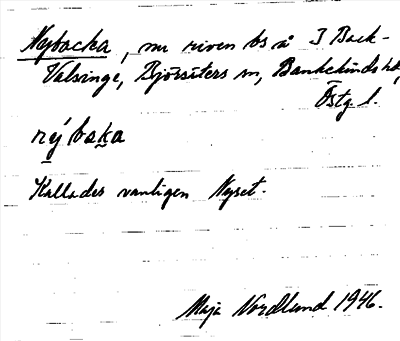 Nybacka, nu riven bs å I Back-
Valsinge, Björsäters sn, Bankekinds hd,
Östg. l.
nýbaka
Kallades vanligen Nyset.
Maja Nordlund 1946.